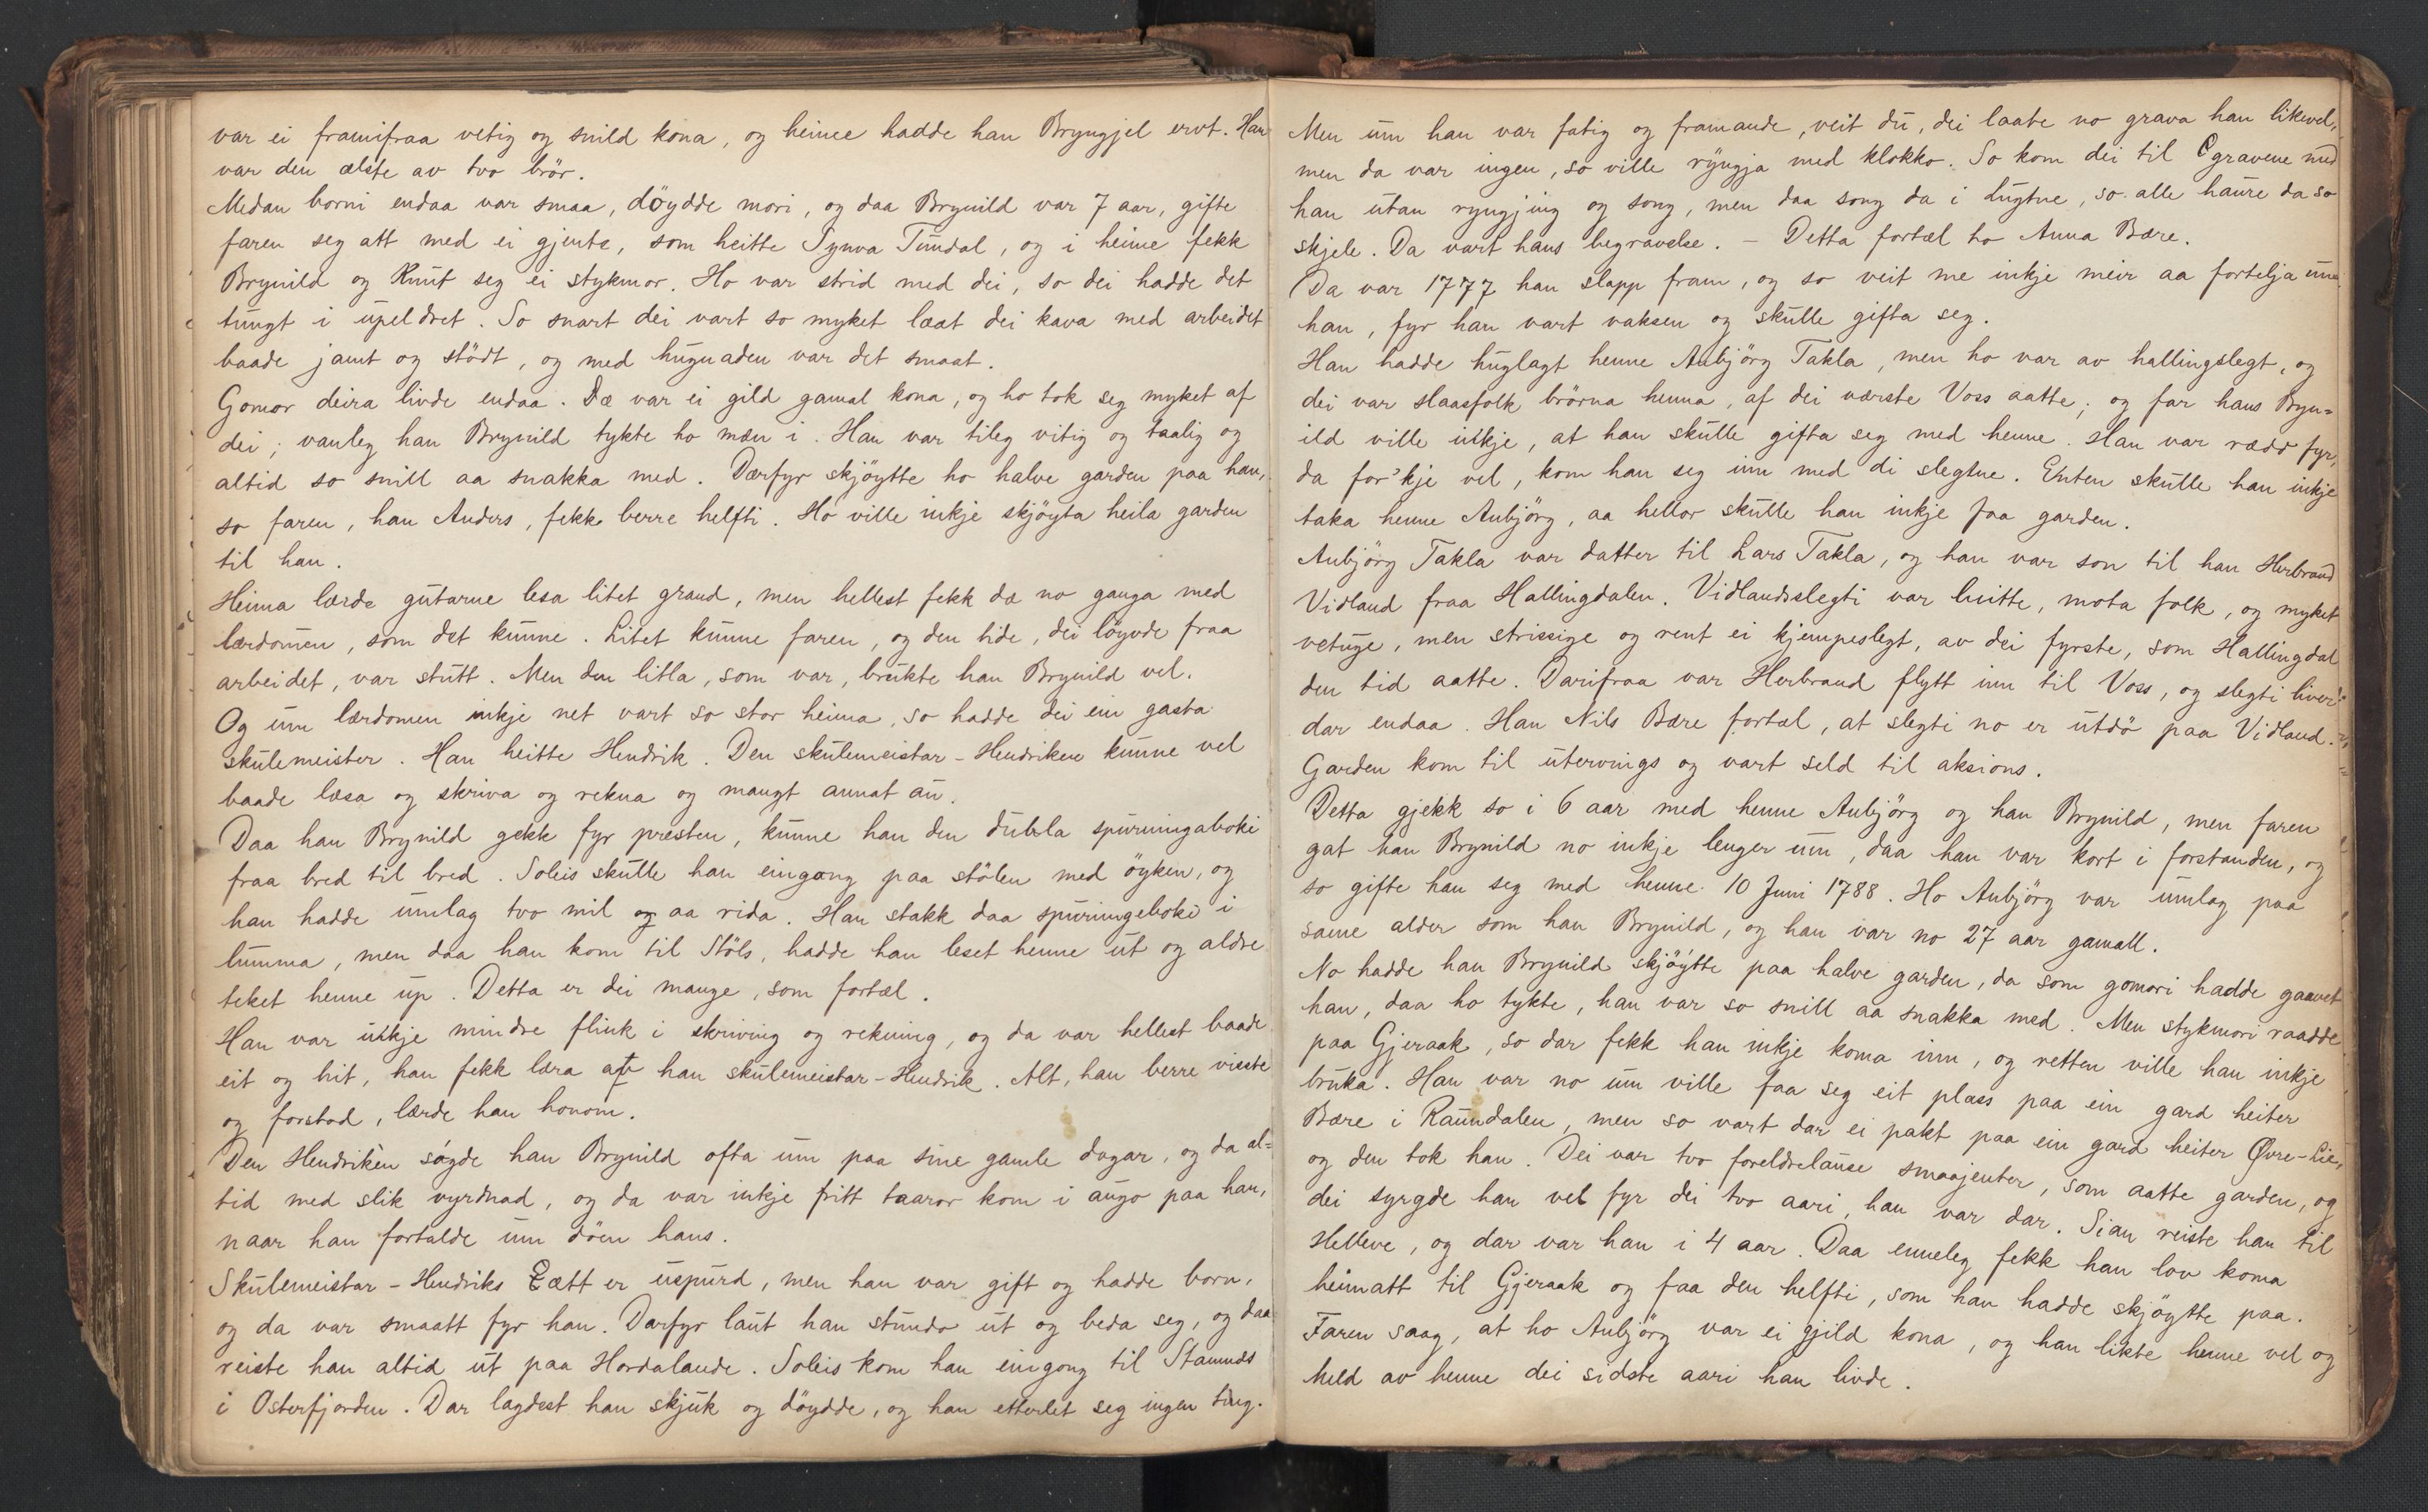 var ei framifraa vetig og snild kona, og henne hadde han Bryngjel ervt. Han
var den ælste av tvo brör.
Medan borni endaa var smaa, döydde mori, og daa Brynild var 7 aar, gifte
faren seg att med ei gjente, som heitte Synva Tundal, og i henne fekk
Brynild og Knut seg ei stykmor. Ho var strid med dei, so dei hadde det
tungt i upeldret. So snart dei vart so myket læat dei kava med arbeidet
baade jamt og stödt, og med hugnaden var det smaat.
Gomor deira livde endaa. Dæ var ei gild gamal kona, og ho tok seg myket af
dei; vanleg han Brynild tykte ho mæn i. Han var tileg vitig og taalig og
altid so snill aa snakka med. Dærfyr skjöytte ho halve garden paa han,
so faren, han Anders, fekk berre helfti. Ho ville inkje skjöyta heila garden
til han.
Heima lærde gutarne lesa litet grand, men hellest fekk da no ganga med
lærdomen, som det kunne. Litet kunne faren, og den tide, dei löyvde fraa
arbeidet, var stutt. Men den litla, som var, brukte han Brynild vel.
Og um lærdomen inkje net vart so stor heima, so hadde dei ein gasta
skulemeister. Han heitte Hendrik. Den skulemeistar-Hendriken kunne vel
baade læsa og skriva og rekna og mangt annat au.
Daa han Brynild gekk fyr præsten, kunne han den dubla spurningaboki
fraa bred til bred. Soleis skulle han eingang paa stölen med öyken, og
han hadde umlag tvo mil og aa rida. Han stakk daa spurningeboki i
lumma, men daa han kom til Stöls, hadde han leset henne ut og aldre
teket henne up. Detta er dei mange, som fortæl.
Han var inkje mindre flink i skriving og rekning, og da var hellest baade
eit og hit, han fekk læra af han skulemeistar-Hendrik. Alt, han berre visste
og forstod, lærde han honom.
Den Hendriken sagde han Brynild ofta um paa sine gamle dagar, og da al=
tid med slik vyrdnad, og da var inkje fritt taaror kom i augo paa han,
naar han fortalde um döen hans.
Skulemeistar-Hendriks Eætt er uspurd, men han var gift og hadde born,
og da var smaatt fyr han. Darfyr laut han stundo ut og beda seg, og daa
reiste han altid ut paa Hordalande. Soleis kom han eingong til Stamnds
i Osterfjorden. Dar lagdest han skjuk og döydde, og han etterlet seg ingen ting.
Men um han var fatig og framande, veit du, dei laate no grava han likevel,
men da var ingen, so ville ryngja med klokko. So kom dei til gravene med
han utan ryngjing og song, men daa song da i lugtne, so alle haure da so
skjele. Da vart hans begravelse. - Detta fortæl ho Anna Bære.
Da var 1777 han slapp fram, og so veit me inkje meir aa fortelja um
han, fyr han vart vaksen og skulle gifta seg.
Han hadde huglagt henne Anbjörg Takla, men ho var av hallingslegt, og
dei var slaasfolk brörna henna, af dei værste Voss aatte; og far hans Bryn=
ild ville inkje, at han skulle gifta seg med henne. Han var rædd fyr,
da for'kje vel, kom han seg inn med di slegtne. Enten skulle han inkje
taka henne Anbjörg, aa hellor skulle han inkje faa garden.
Anbjörg Takla var datter til Lars Takla, og han var son til han Herbrand
Vidland fraa Hallingdalen. Vidlandsslegti var hvitte, mota folk, og myket
vetuge, men strissige og rent ei kjempeslegt, av dei fyrste, som Hallingdal
den tid aatte. Darifraa var Herbrand flytt inn til Voss, og slegti liver
dar endaa. Han Nils Bære fortæl, at slegti no er utdö paa Vidland.
Garden kom til utervings og vart seld til aksions.
Detta gjekk so i 6 aar med henne Anbjörg og han Brynild, men faren
gat han Brynild no inkje lenger um, daa han var kort i forstanden, og
so gifte han seg med henne 10 Juni 1788. Ho Anbjörg var umlag paa
same alder som han Brynild, og han var no 27 aar gamall.
No hadde han Brynild skjöytte paa halve garden, da som gomori hadde gaavet
han, daa ho tykte, han var so snill aa snakka med. Men stykmori raadde
paa Gjeraak, so dar fekk han inkje koma inn, og retten ville han inkje
bruka. Han var no um ville faa seg eit plass paa ein gard heiter
Bære i Raundalen, men so vart dar ei pakt paa ein gard heiter Øvre-Lie,
og den tok han. Dei var tvo foreldrelause smaajenter, som aatte garden, og
dei syrgde han vel fyr dei tvo aari, han var dar. Sian reiste han til
Helleve, og dar var han i 4 aar. Daa enneleg fekk han lov koma
heimatt til Gjeraak og faa den helfti, som han hadde skjöytte paa.
Faren saag, at ho Anbjörg var ei gjild kona, og han likte henne vel og
held av henne dei sidste aari han livde.